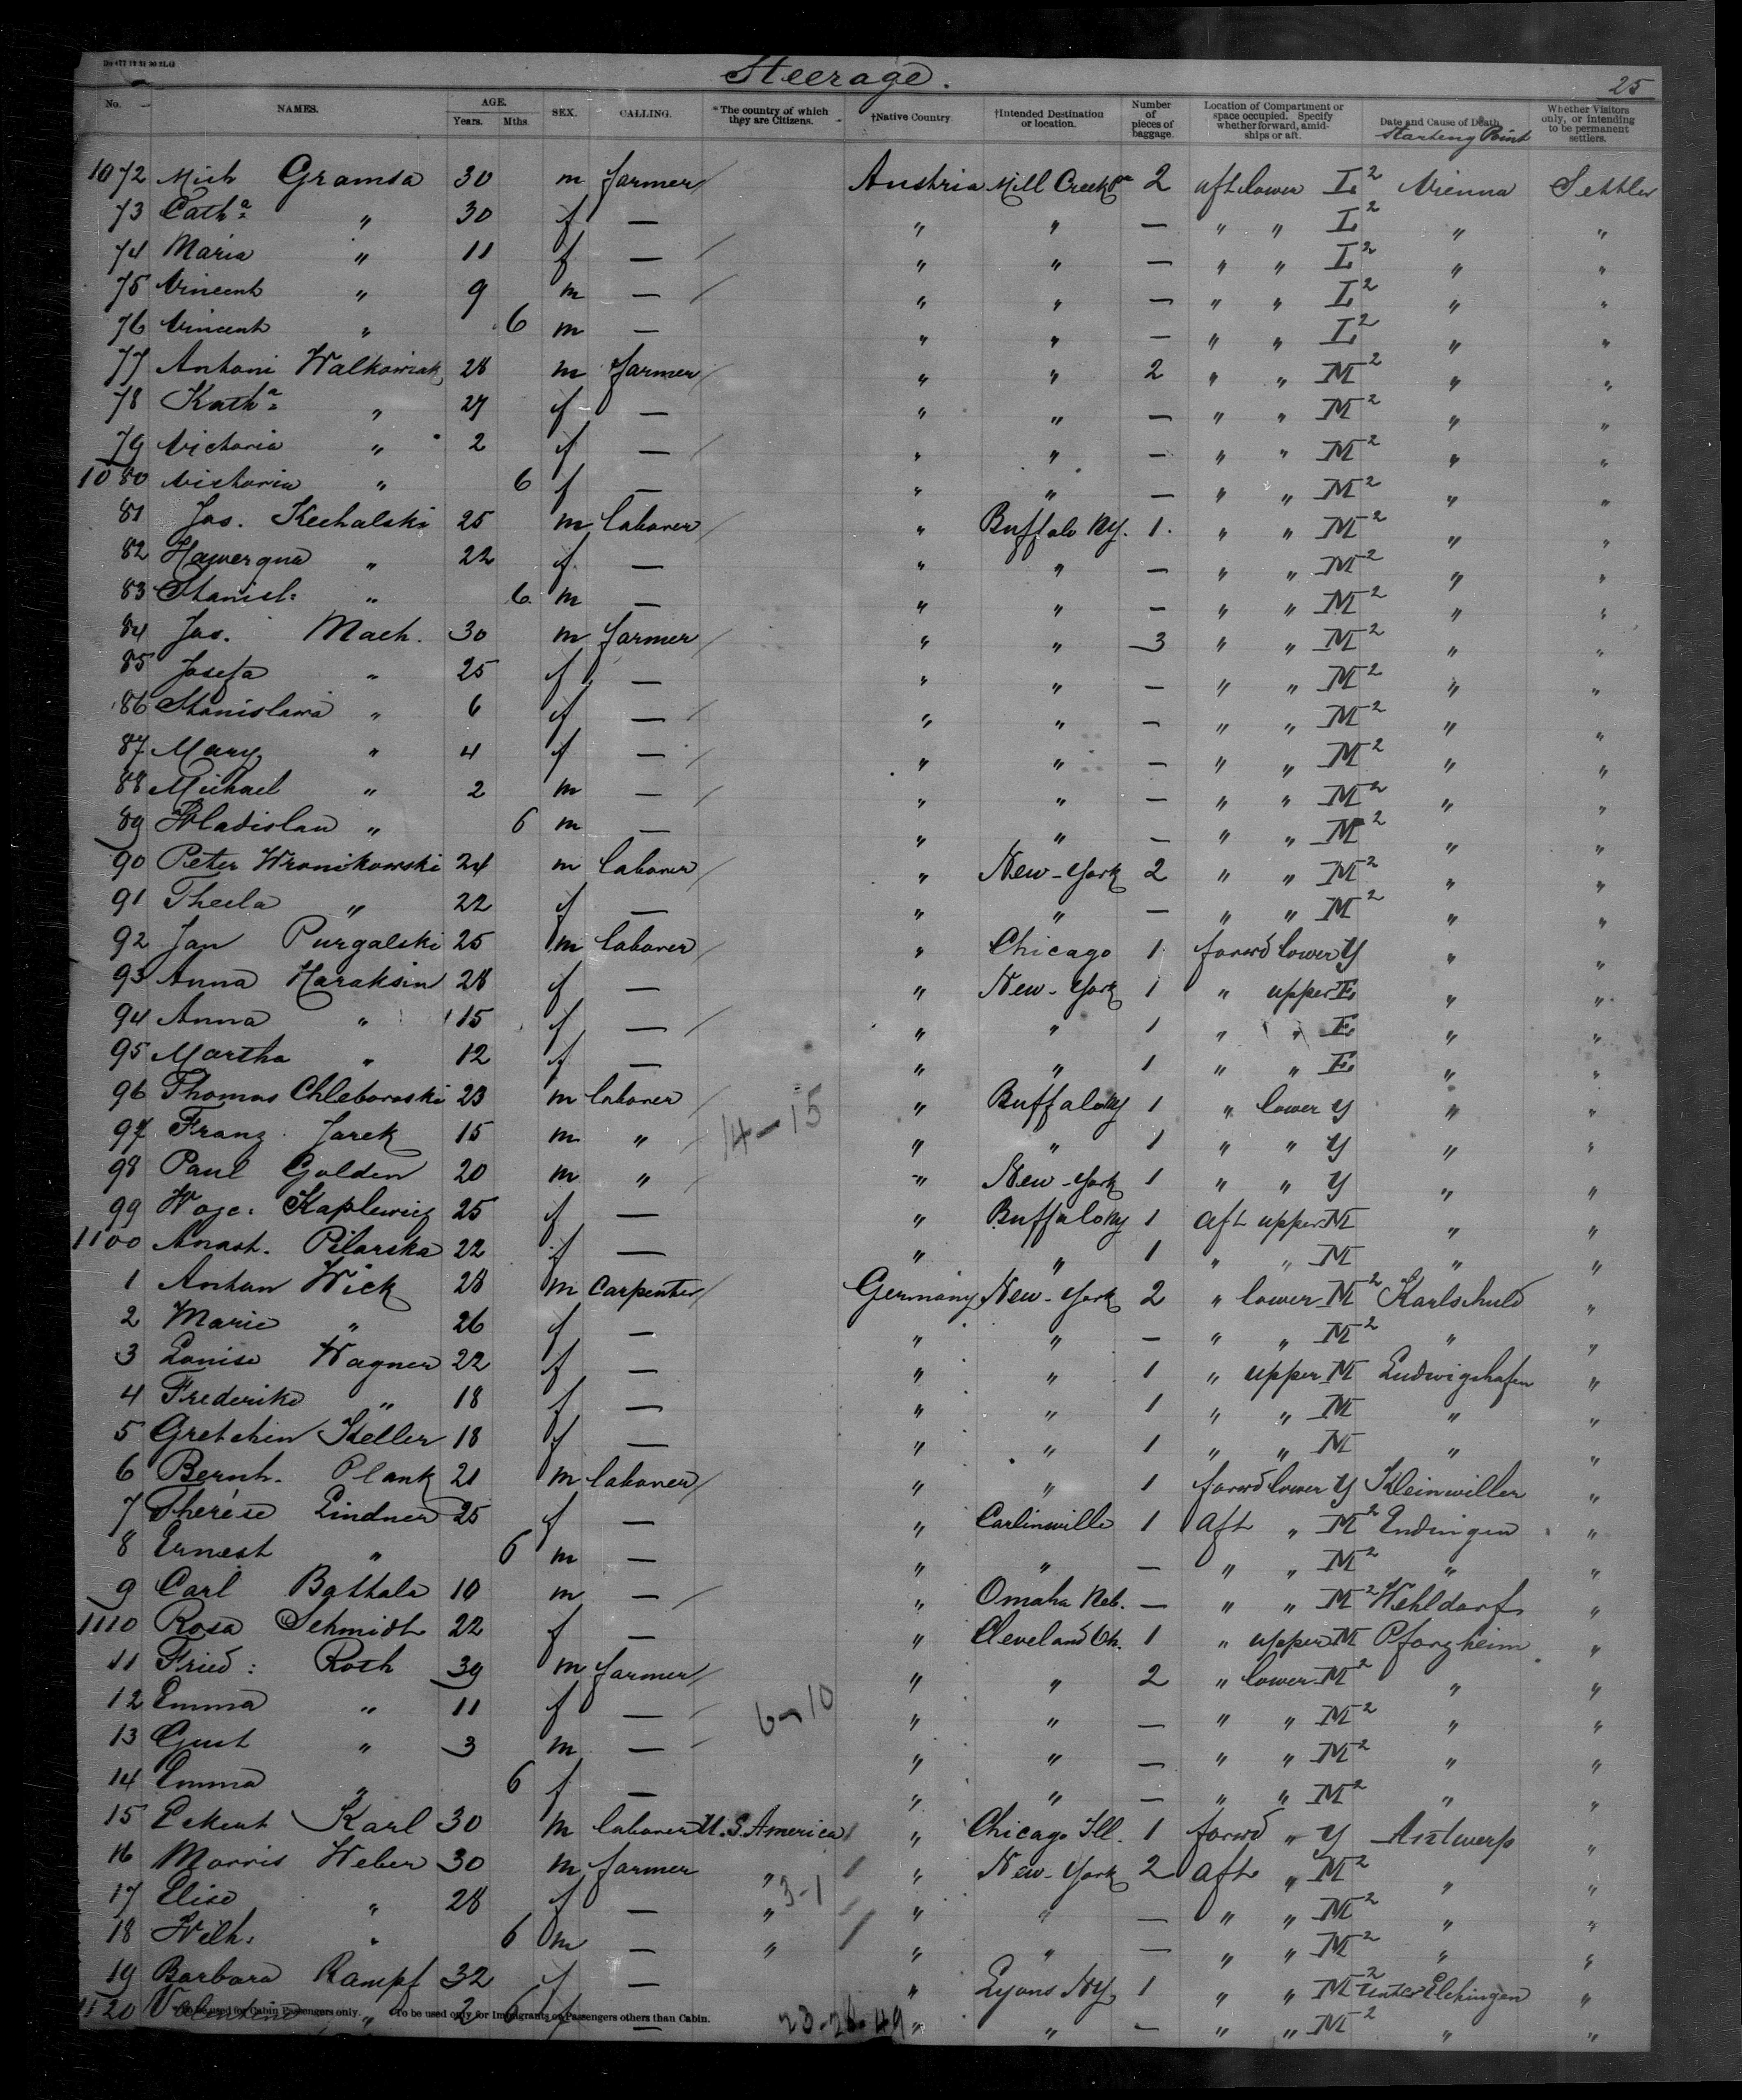 Steerage. 25
No. NAMES. AGE. Years. Mths. SEX. CALLING. *The country of which they are Citizens. †Native Country †Intended Destination or location. Number of pieces of baggage. Location of Compartment or space occupied. Specify whether forward, amidships or aft. Date and Cause of Death Starting Point Whether Visitors only, or intending to be permanent settlers.
1072 Mich Gramsa 30 m farmer / Austria Mill Creek Pa 2 aft lower L2 Vienna Settler
73 Catha " 30 f — " " — " " L2 " "
74 Maria " 11 f — / " " — " " L2 " "
75 Vincent " 9 m — / " " — " " L2 " "
76 Vincent " 6 m — " " — " " L2 " "
77 Antoni Walkowiak 28 m farmer / " " 2 " " M2 " "
78 Katha " 27 f — " " — " " M2 " "
79 Victoria " 2 f — / " " — " " M2 " "
1080 Victoria " 6 f — " " — " " M2 " "
81 Jos. Kechalski 25 m laborer / " Buffalo NY. 1 " " M2 " "
82 " 22 f — " " — " " M2 " "
83 Stanisl: " 6 m — " " — " " M2 " "
84 Jos. Mach. 30 m farmer / " " 3 " " M2 " "
85 Josefa " 25 f — " " — " " M2 " "
86 Stanislawa " 6 f — / " " — " " M2 " "
87 Mary " 4 f — / " " — " " M2 " "
88 Michael " 2 m — / " " — " " M2 " "
89 Wladislau " 6 m — " " — " " M2 " "
90 Peter Wronikowski 24 m laborer / " New-York 2 " " M2 " "
91 Thecla " 22 f — " " — " " M2 " "
92 Jan Purgalski 25 m laborer / " Chicago 1 forwd lower Y " "
93 Anna Haraksin 28 f — " New-York 1 " upper E " "
94 Anna " 15 f — / " " 1 " " E " "
95 Martha " 12 f — " " 1 " " E " "
96 Thomas Chleboroski 23 m laborer / " Buffalo NY 1 " lower Y " "
97 Franz Jarek 15 m " / 14-15 " " 1 " " Y " "
98 Paul Golden 20 m " / " New-York 1 " " Y " "
99 Woje: Kaplewicz 25 f — " Buffalo NY 1 aft upper M " "
1100 Anast. Pilarska 22 f — " " 1 " " M " "
1 Anton Wick 28 m Carpenter / Germany New-York 2 " lower M2 Karlschuld "
2 Marie " 26 f — " " — " " M2 " "
3 Louise Wagner 22 f — " " 1 " upper M Ludwigshafen "
4 Frederike " 18 f — " " 1 " " M " "
5 Gretchen Keller 18 f — " " 1 " " M " "
6 Bernh. Plank 21 m laborer / " " 1 forwd lower Y Kleinwiller "
7 Therése Lindner 25 f — " Carlinville 1 aft " M2 Endingen "
8 Ernest " 6 m — " " — " " M2 " "
9 Carl Battala 10 m — / " Omaha Neb. — " " M2 Wehldorf "
1110 Rosa Schmidt 22 f — " Cleveland Oh. 1 " upper M Pforzheim "
11 Fried: Roth 39 m farmer / " " 2 " lower M2 " "
12 Emma " 11 f — / 6-10 " " — " " M2 " "
13 Gust " 3 m — / " " — " " M2 " "
14 Emma " 6 f — " " — " " M2 " "
15 Karl 30 m laborer U.S. America / " Chicago Ill. 1 forwd " Y Antwerp "
16 Morris Weber 30 m farmer " / " New-York 2 aft " M2 " "
17 Elise " 28 f — " 3-1 / " " — " " M2 " "
18 Wilh: " 6 m — " / " " — " " M2 " "
19 Barbara Rampf 32 f — " Lyons NY 1 " " M2 Unter Elchingen "
1120 Valentine " 2 6 f — 23-26-49 " " — " " M2 " "
*To be used for Cabin Passengers only. †To be used only for Immigrants or Passengers others than Cabin.